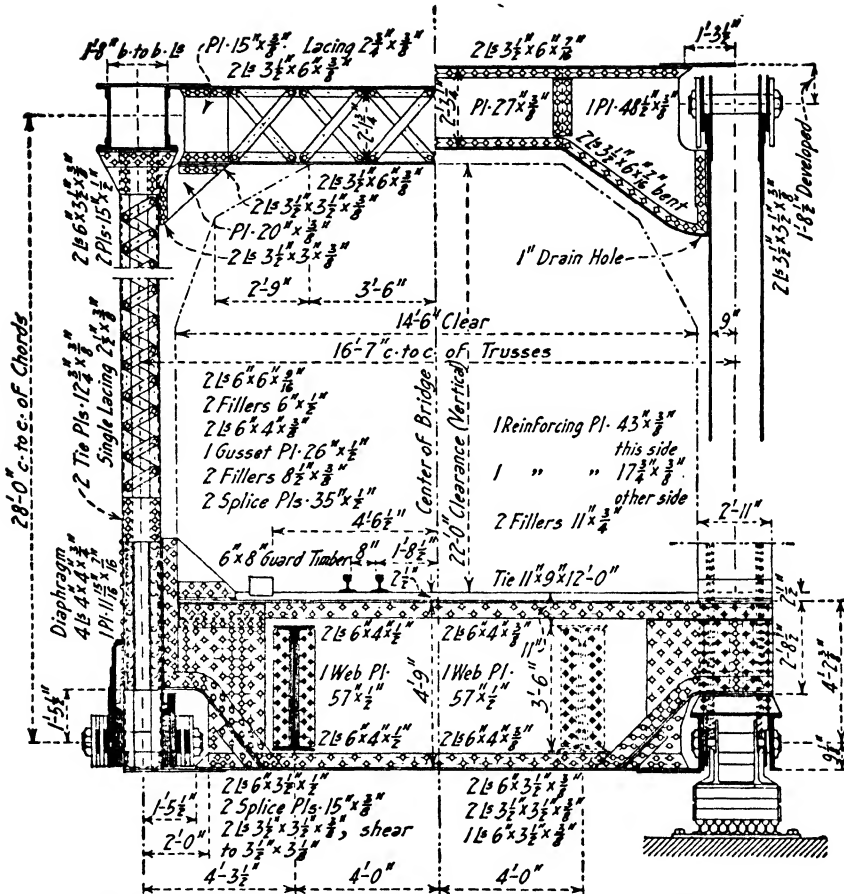 1'-8" b. to b. Ls
Pl. 15" x 3/8"
Lacing 2 3/4" x 3/8"
2 Ls 3 1/2" x 6" x 3/8"
2 Ls 3 1/2" x 6" x 7/16"
1'-3 1/2"
Pl. 27" x 3/8"
1 Pl. 48 1/2" x 3/8"
2'-1 3/4"
2'-3 1/4"
2 Ls 3 1/2" x 6" x 7/16" bent
1'-8 1/2" Developed
2 Ls 3 1/2" x 3 1/2" x 3/8"
2 Ls 6" x 3 1/2" x 3/8"
2 Pls. 15" x 1/2"
2 Ls 3 1/2" x 6" x 3/8"
2 Ls 3 1/2" x 3 1/2" x 3/8"
Pl. 20" x 3/8"
2 Ls 3 1/2" x 3" x 3/8"
1" Drain Hole
2'-9"
3'-6"
14'-6" Clear
9"
16'-7" c. to c. of Trusses
28'-0" c. to c. of Chords
2 Tie Pls. 12 3/4" x 3/8"
Single Lacing 2 1/2" x 3/8"
2 Ls 6" x 6" x 9/16"
2 Fillers 6" x 1/2"
2 Ls 6" x 4" x 3/8"
1 Gusset Pl. 26" x 1/2"
2 Fillers 8 1/2" x 3/8"
2 Splice Pls. 35" x 1/2"
Center of Bridge
22'-0" Clearance (Vertical)
1 Reinforcing Pl. 43" x 3/8"
this side
1 " " 17 3/4" x 3/8"
other side
2 Fillers 11" x 3/4"
2'-11"
4'-6 1/2"
6" x 8" Guard Timber
8"
1'-8 1/2"
2 1/2"
Tie 11" x 9" x 12'-0"
2 1/2"
Diaphragm
4 Ls 4" x 4" x 3/4"
1 Pl. 11 15/16" x 7/16"
2 Ls 6" x 4" x 1/2"
2 Ls 6" x 4" x 3/8"
11"
1 Web Pl.
57" x 1/2"
1 Web Pl.
57" x 1/2"
4'-9"
3'-6"
2'-8 1/2"
4'-2 3/4"
2 Ls 6" x 4" x 1/2"
2 Ls 6" x 4" x 3/8"
1'-5 1/2"
9 1/2"
2 Ls 6" x 3 1/2" x 1/2"
2 Splice Pls. 15" x 3/8"
2 Ls 3 1/2" x 3 1/2" x 3/8", shear
to 3 1/2" x 3 1/8"
2 Ls 6" x 3 1/2" x 3/8"
2 Ls 3 1/2" x 3 1/2" x 3/8"
1 Ls 6" x 3 1/2" x 3/8"
1'-5 1/2"
2'-0"
4'-3 1/2"
4'-0"
4'-0"